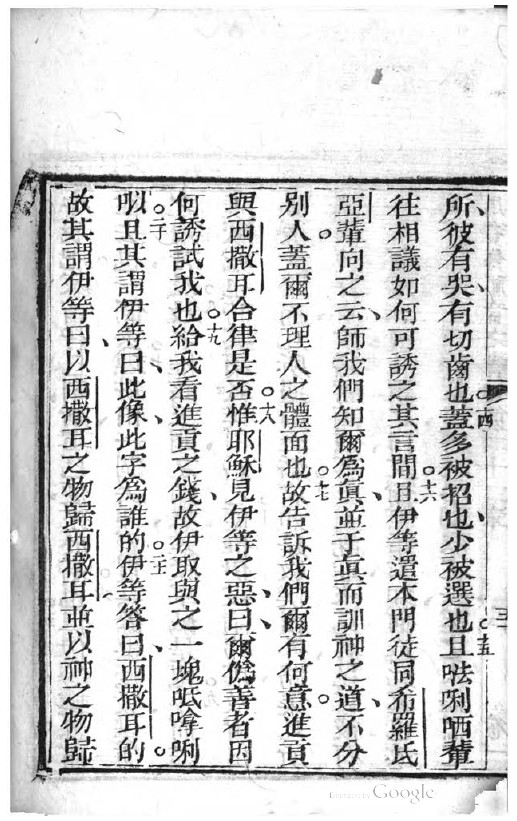 所彼有哭有切齒也○十四蓋多被招也少被選也○十五且𠵽唎哂輩
往相議如何可誘之其言間○十六且伊等遣本門徒同希羅氏
亞輩向之云師我們知爾為眞並于眞而訓神之道不分
別人蓋爾不理人之體面也○十七故告訴我們爾有何意進貢
與西撒耳合律是否○十八惟耶穌見伊等之惡曰爾僞善者因
何誘試我也○十九給我看進貢之錢故伊取與之一塊呧嗱唎
○二十且其謂伊等曰此像此字為誰的○二十一伊等答曰西撒耳的
故其謂伊等曰以西撒耳之物歸西撒耳並以神之物歸
Digitized by Google